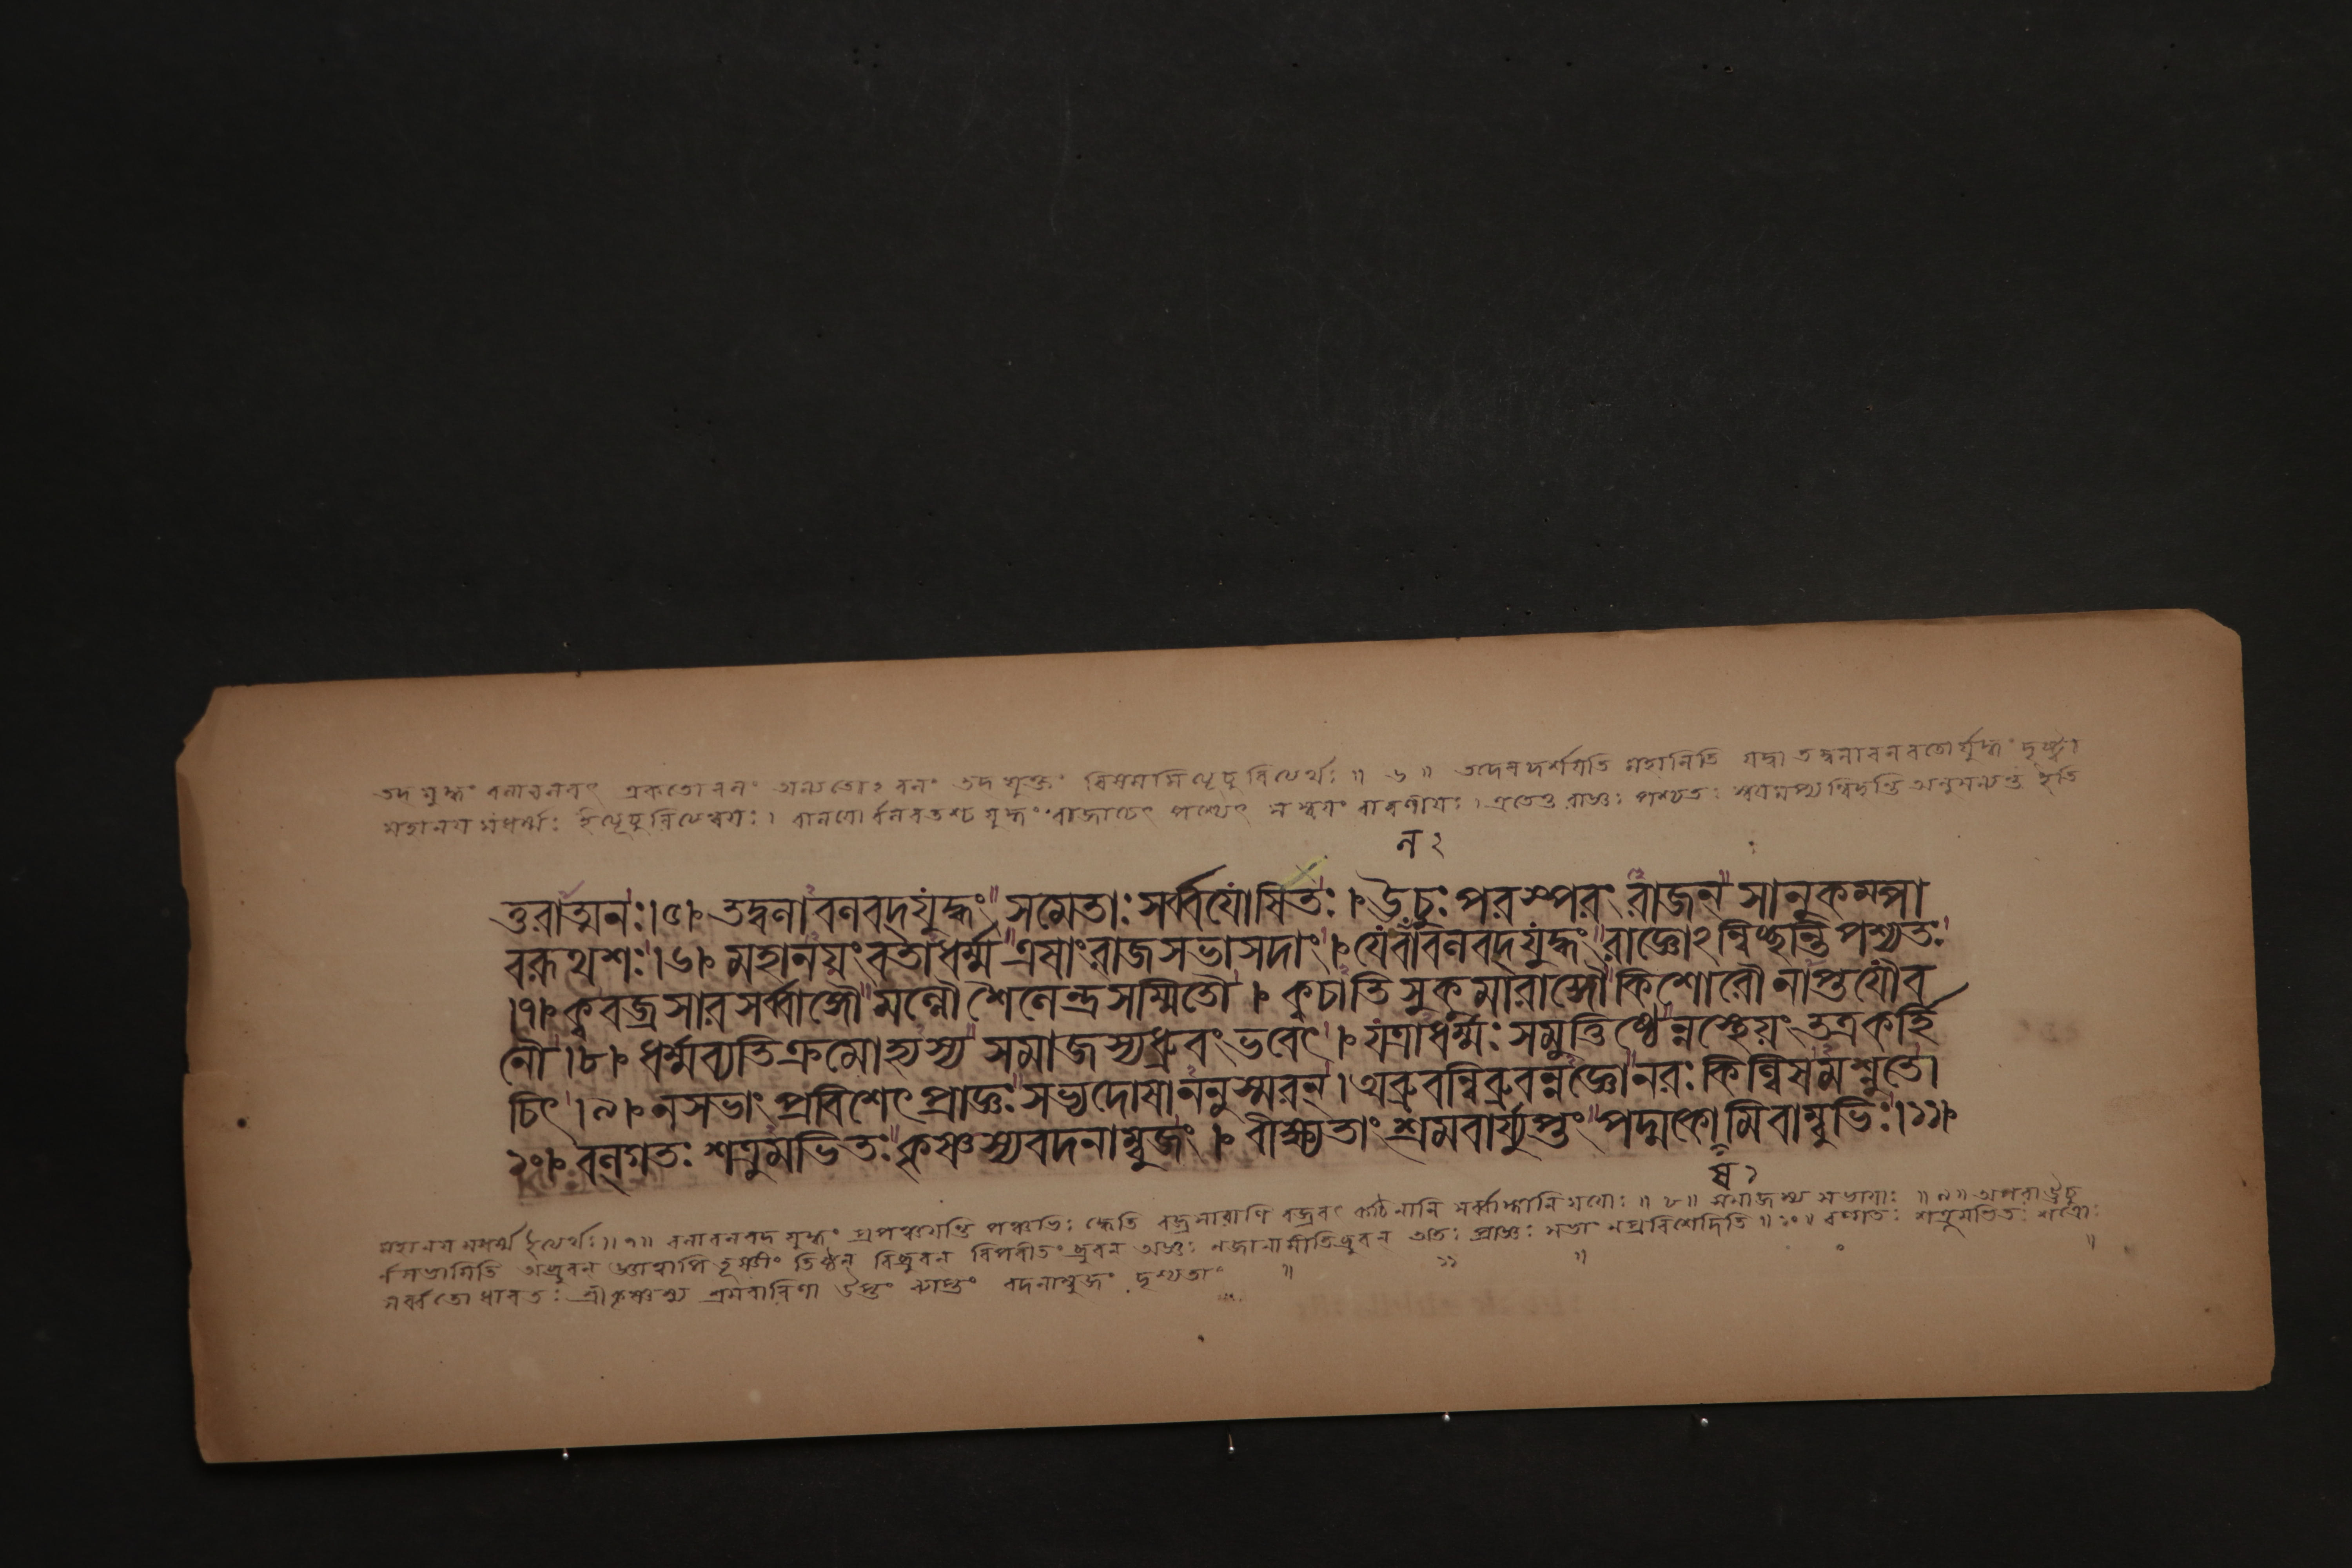 তদ যুদ্ধং বলাবলবৎ একতো বলং অন্যতোঽবলং তদ যুক্তং বিষমমিত্যূচুরিত্যর্থঃ ॥ ৬ ॥ তদেব দর্শয়তি মহানিতি যদ্বা তদ্বলাবলবতোর্যুদ্ধং দৃষ্ট্বা
মহানয় মধর্ম্মঃ ইত্যূচুরিত্যন্বয়ঃ । বলাবলবতশ্চ যুদ্ধং রাজাচেৎ পশ্যেৎ স স্বয়ং বারণীয়ঃ । এতেতু রাজ্ঞঃ পশ্যতঃ স্বয়মপ্যন্বিচ্ছন্তি অনুমন্যন্ত ইতি
ন ২
ত্তরাত্মনঃ।৫। তদ্বলাবলবদযুদ্ধং সমেতাঃ সর্ব্বযোষিতঃ । ঊচুঃ পরস্পরং রাজন্ সানুকম্পা
বরূথশঃ।৬। মহানয়ং বতাধর্ম্ম এষাং রাজসভাসদাং । যে বলাবলবদযুদ্ধং রাজ্ঞোঽন্বিচ্ছন্তি পশ্যতঃ
।৭। ক্ব বজ্রসারসর্ব্বাঙ্গৌ মল্লৌ শৈলেন্দ্রসম্মিতৌ । ক্ব চাতিসুকুমারাঙ্গৌ কিশোরৌ নাপ্তযৌব
নৌ ।৮। ধর্ম্মব্যতিক্রমোহ্যস্য সমাজস্য ধ্রুবং ভবেৎ । যত্রাধর্ম্মঃ সমুত্তিষ্ঠেন্নস্থেয়ং তত্র কর্হি
চিৎ ।৯। ন সভাং প্রবিশেৎ প্রাজ্ঞঃ সভ্যদোষাননুস্মরন্ । অব্রুবন্বিব্রুবন্নজ্ঞো নরঃ কিল্বিষমশ্নুতে।
১০। বল্গতঃ শত্রুমভিতঃ কৃষ্ণস্য বদনাম্বুজং । বীক্ষ্যতাং শ্রমবার্য্যুপ্তং পদ্মকোমিবাম্বুভিঃ।১১।
ষ ১
মহানয় মধর্ম্ম ইত্যর্থঃ॥ ৭॥ বলাবলবদ যুদ্ধং প্রপঞ্চয়ন্তি পঞ্চভিঃ ক্বেতি বজ্রসারাণি বজ্রবৎ কঠিনানি সর্ব্বাঙ্গানি যয়োঃ ॥ ৮॥ সমাজস্য সভায়াঃ ॥ ৯॥ অপরা ঊচু
র্নসভামিতি অব্রুবন্ জ্ঞাত্বাপি তূষ্ণীং তিষ্ঠন্ বিব্রুবন্ বিপরীতং ব্রুবন্ অজ্ঞঃ নজানামীতিব্রুবন্ অতঃ প্রাজ্ঞঃ সভাং নপ্রবিশেদিতি ॥ ১০॥ বল্গতঃ শত্রুমভিতঃ শত্রোঃ
সর্ব্বতো ধাবতঃ শ্রীকৃষ্ণস্য শ্রমবারিণা উপ্তং ব্যাপ্তং বদনাম্বুজং দৃশ্যতাং ॥ ১১ ॥